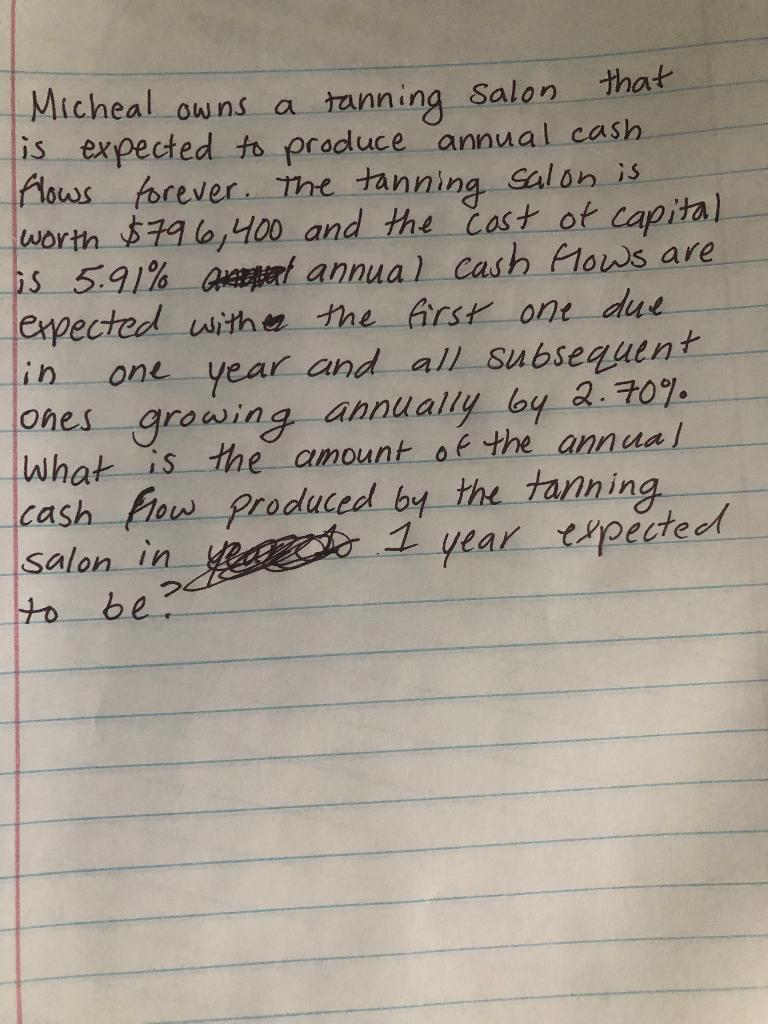 Micheal owns a tanning salon that
is expected to produce annual cash
flows forever. The tanning salon is
worth $796,400 and the cost of capital
is 5.91% annual cash flows are
expected with the first one due
in one year and all subsequent
ones growing annually by 2.70%.
What is the amount of the annual
cash flow produced by the tanning
salon in 1 year expected
to be?